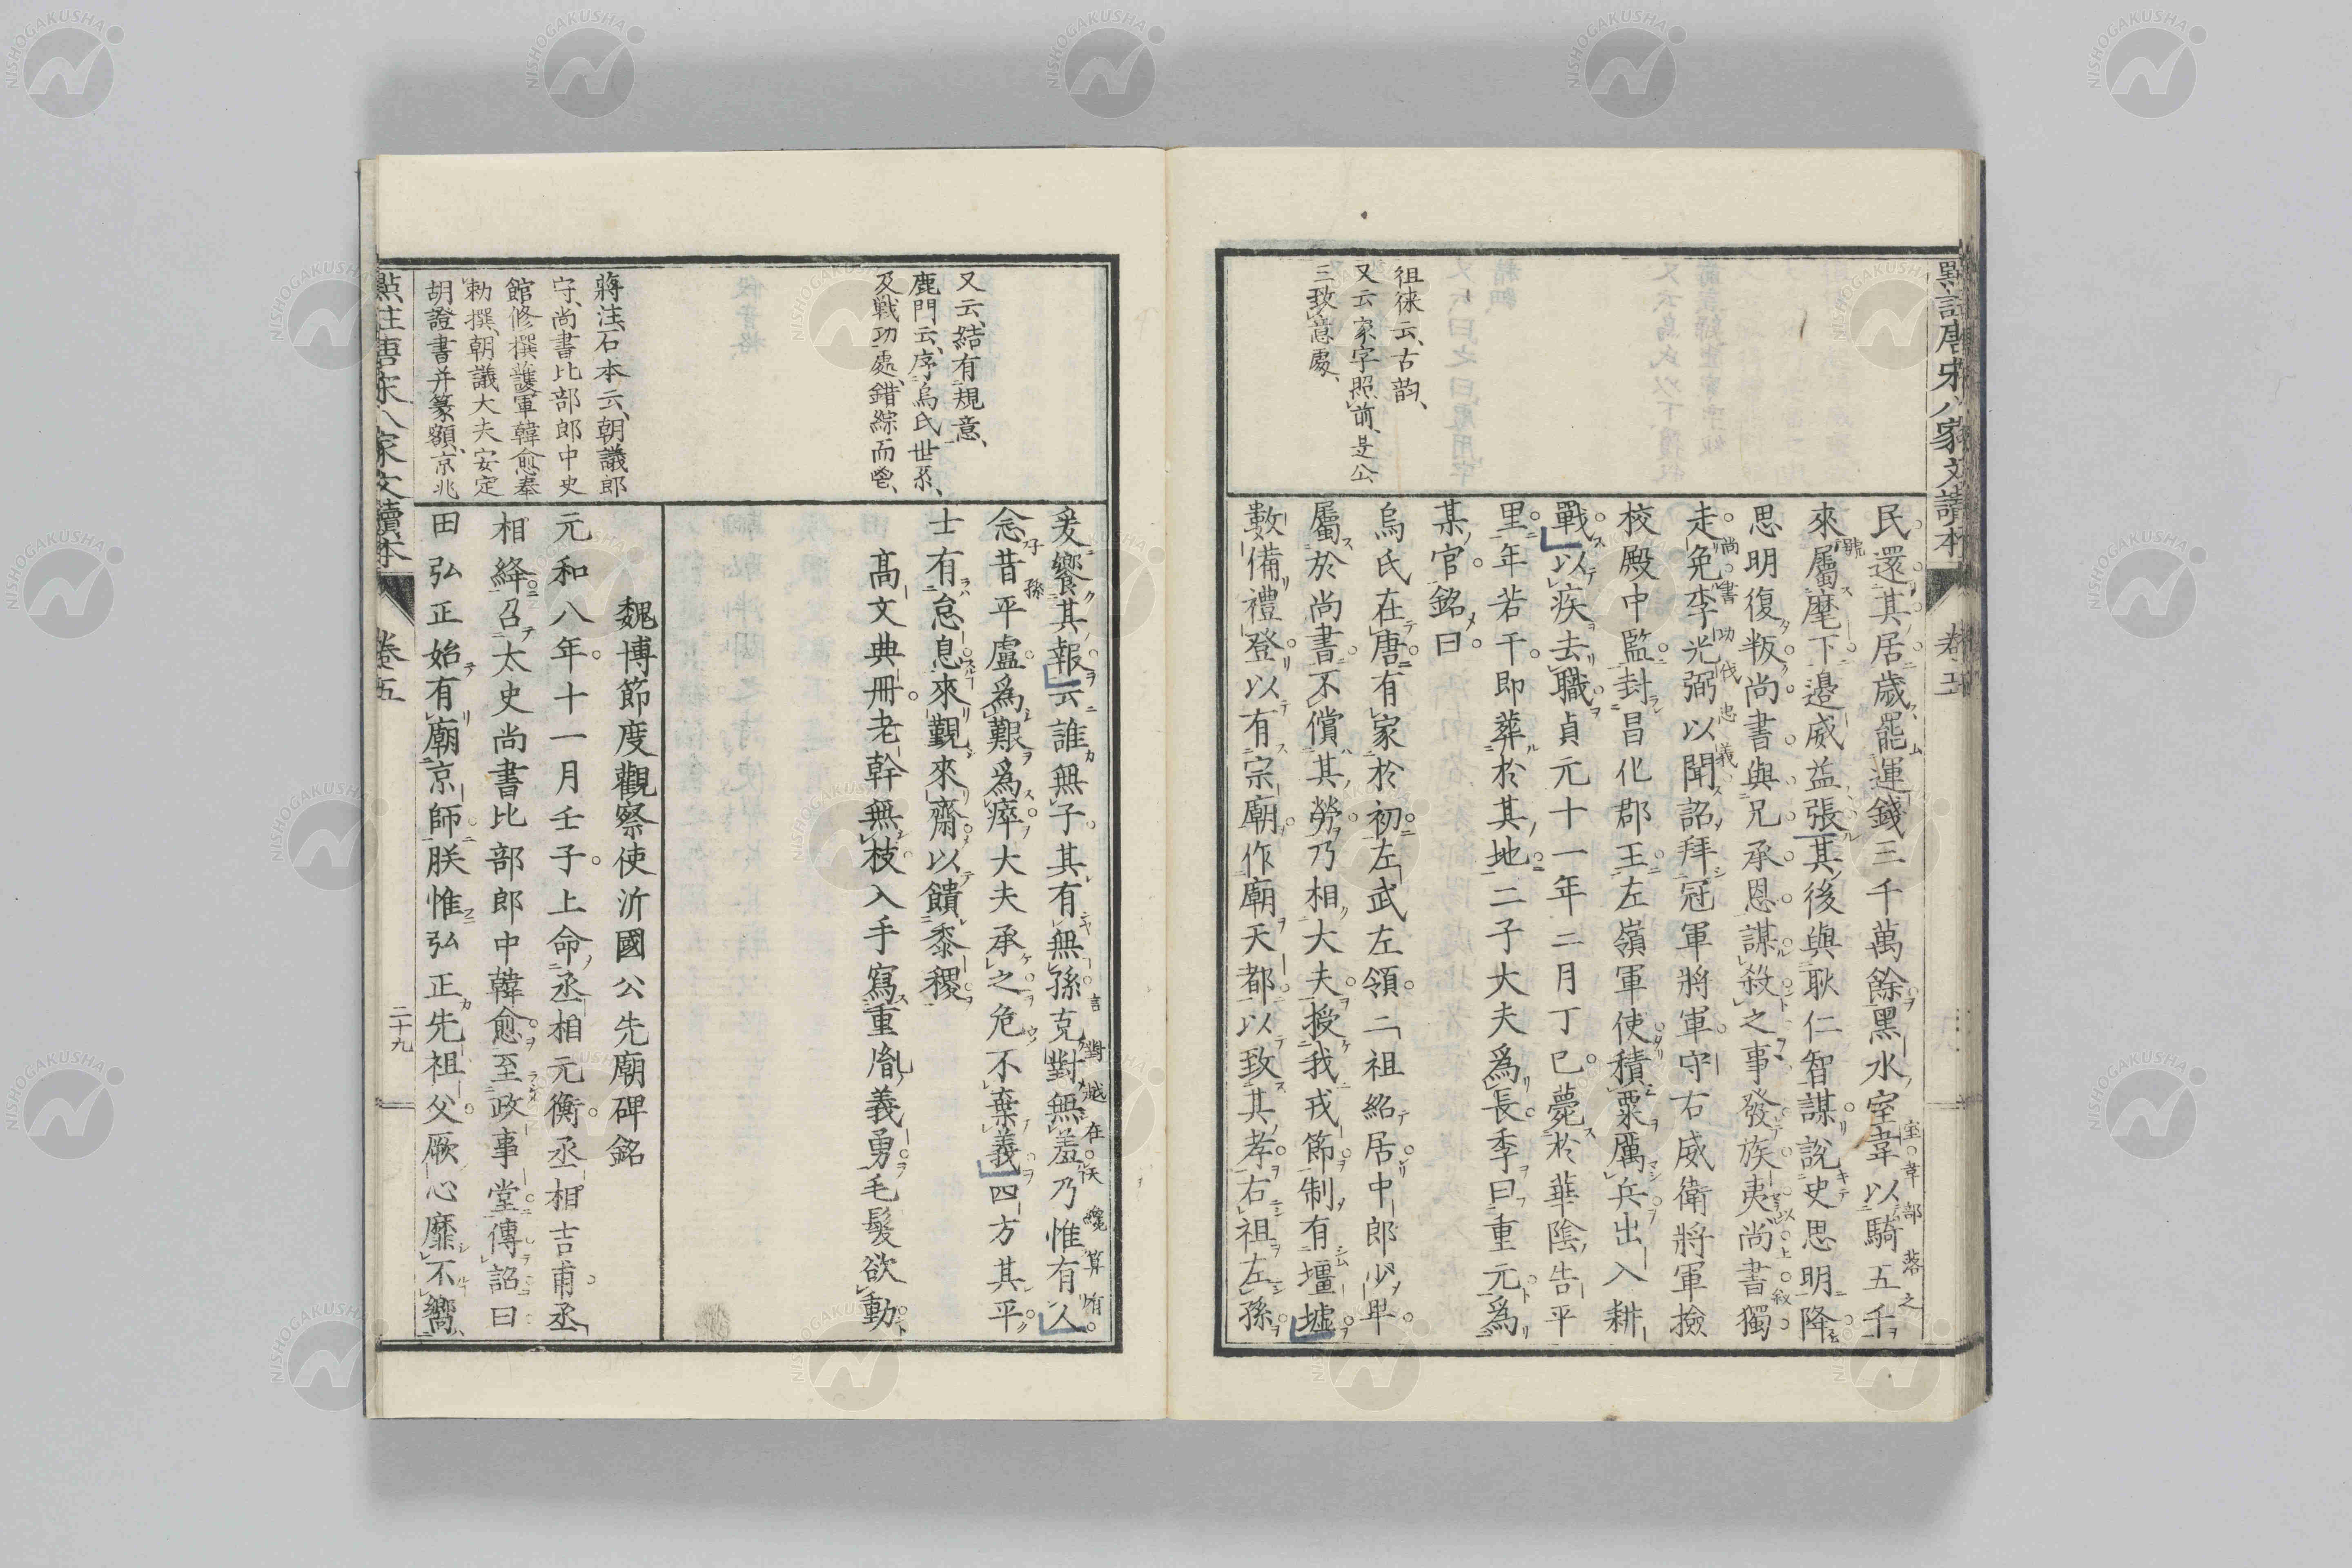 民還其居歳罷運錢三千萬餘黑水室韋以騎五千
來屬麾下邊威益張其後與耿仁智謀說史思明降
思明復叛尚書與兄承恩謀殺之事發族夷尚書獨
走免李光弼以聞詔拜冠軍將軍守右威衛將軍檢
校殿中監封昌化郡王左嶺軍使積粟厲兵出入耕
戰以疾去職貞元十一年二月丁巳薨於華陰告平
里年若干即葬於其地二子大夫爲長季曰重元爲
某官銘曰
烏氏在唐有家於初左武左領二祖紹居中郎少卑
屬於尚書不償其勞乃相大夫授我戎節制有壃墟
數備禮登以有宗廟作廟天都以致其孝右祖左孫
室韋部落之
尚書功伐忠義
徂徠云、古韵、
又云家字照前、是公
三致意處、
爰饗其報云誰無子其有無孫克對無羞乃惟有人
念昔平盧爲艱爲瘁大夫承之危不棄義四方其平
士有怠息來覲來齋以饋黍稷
高文典冊老幹無枝入手寫重胤義勇毛髮欲動
子孫
又云、結有規意、
鹿門云、序烏氏世系、
及戰功處、錯綜而鬯、
魏博節度觀察使沂國公先廟碑銘
元和八年十一月壬子上命丞相元衡丞相吉甫丞
相絳召太史尚書比部郎中韓愈至政事堂傳詔曰
田弘正始有廟京師朕惟弘正先祖父厥心靡不嚮
蔣注、石本云、朝議郎
守、尚書比部郎中史
館修撰護軍韓愈奉
勅撰、朝議大夫安定
胡證書并篆額、京兆
點註唐宋八家文讀本
卷五
二十九
NISHOGAKUSHA